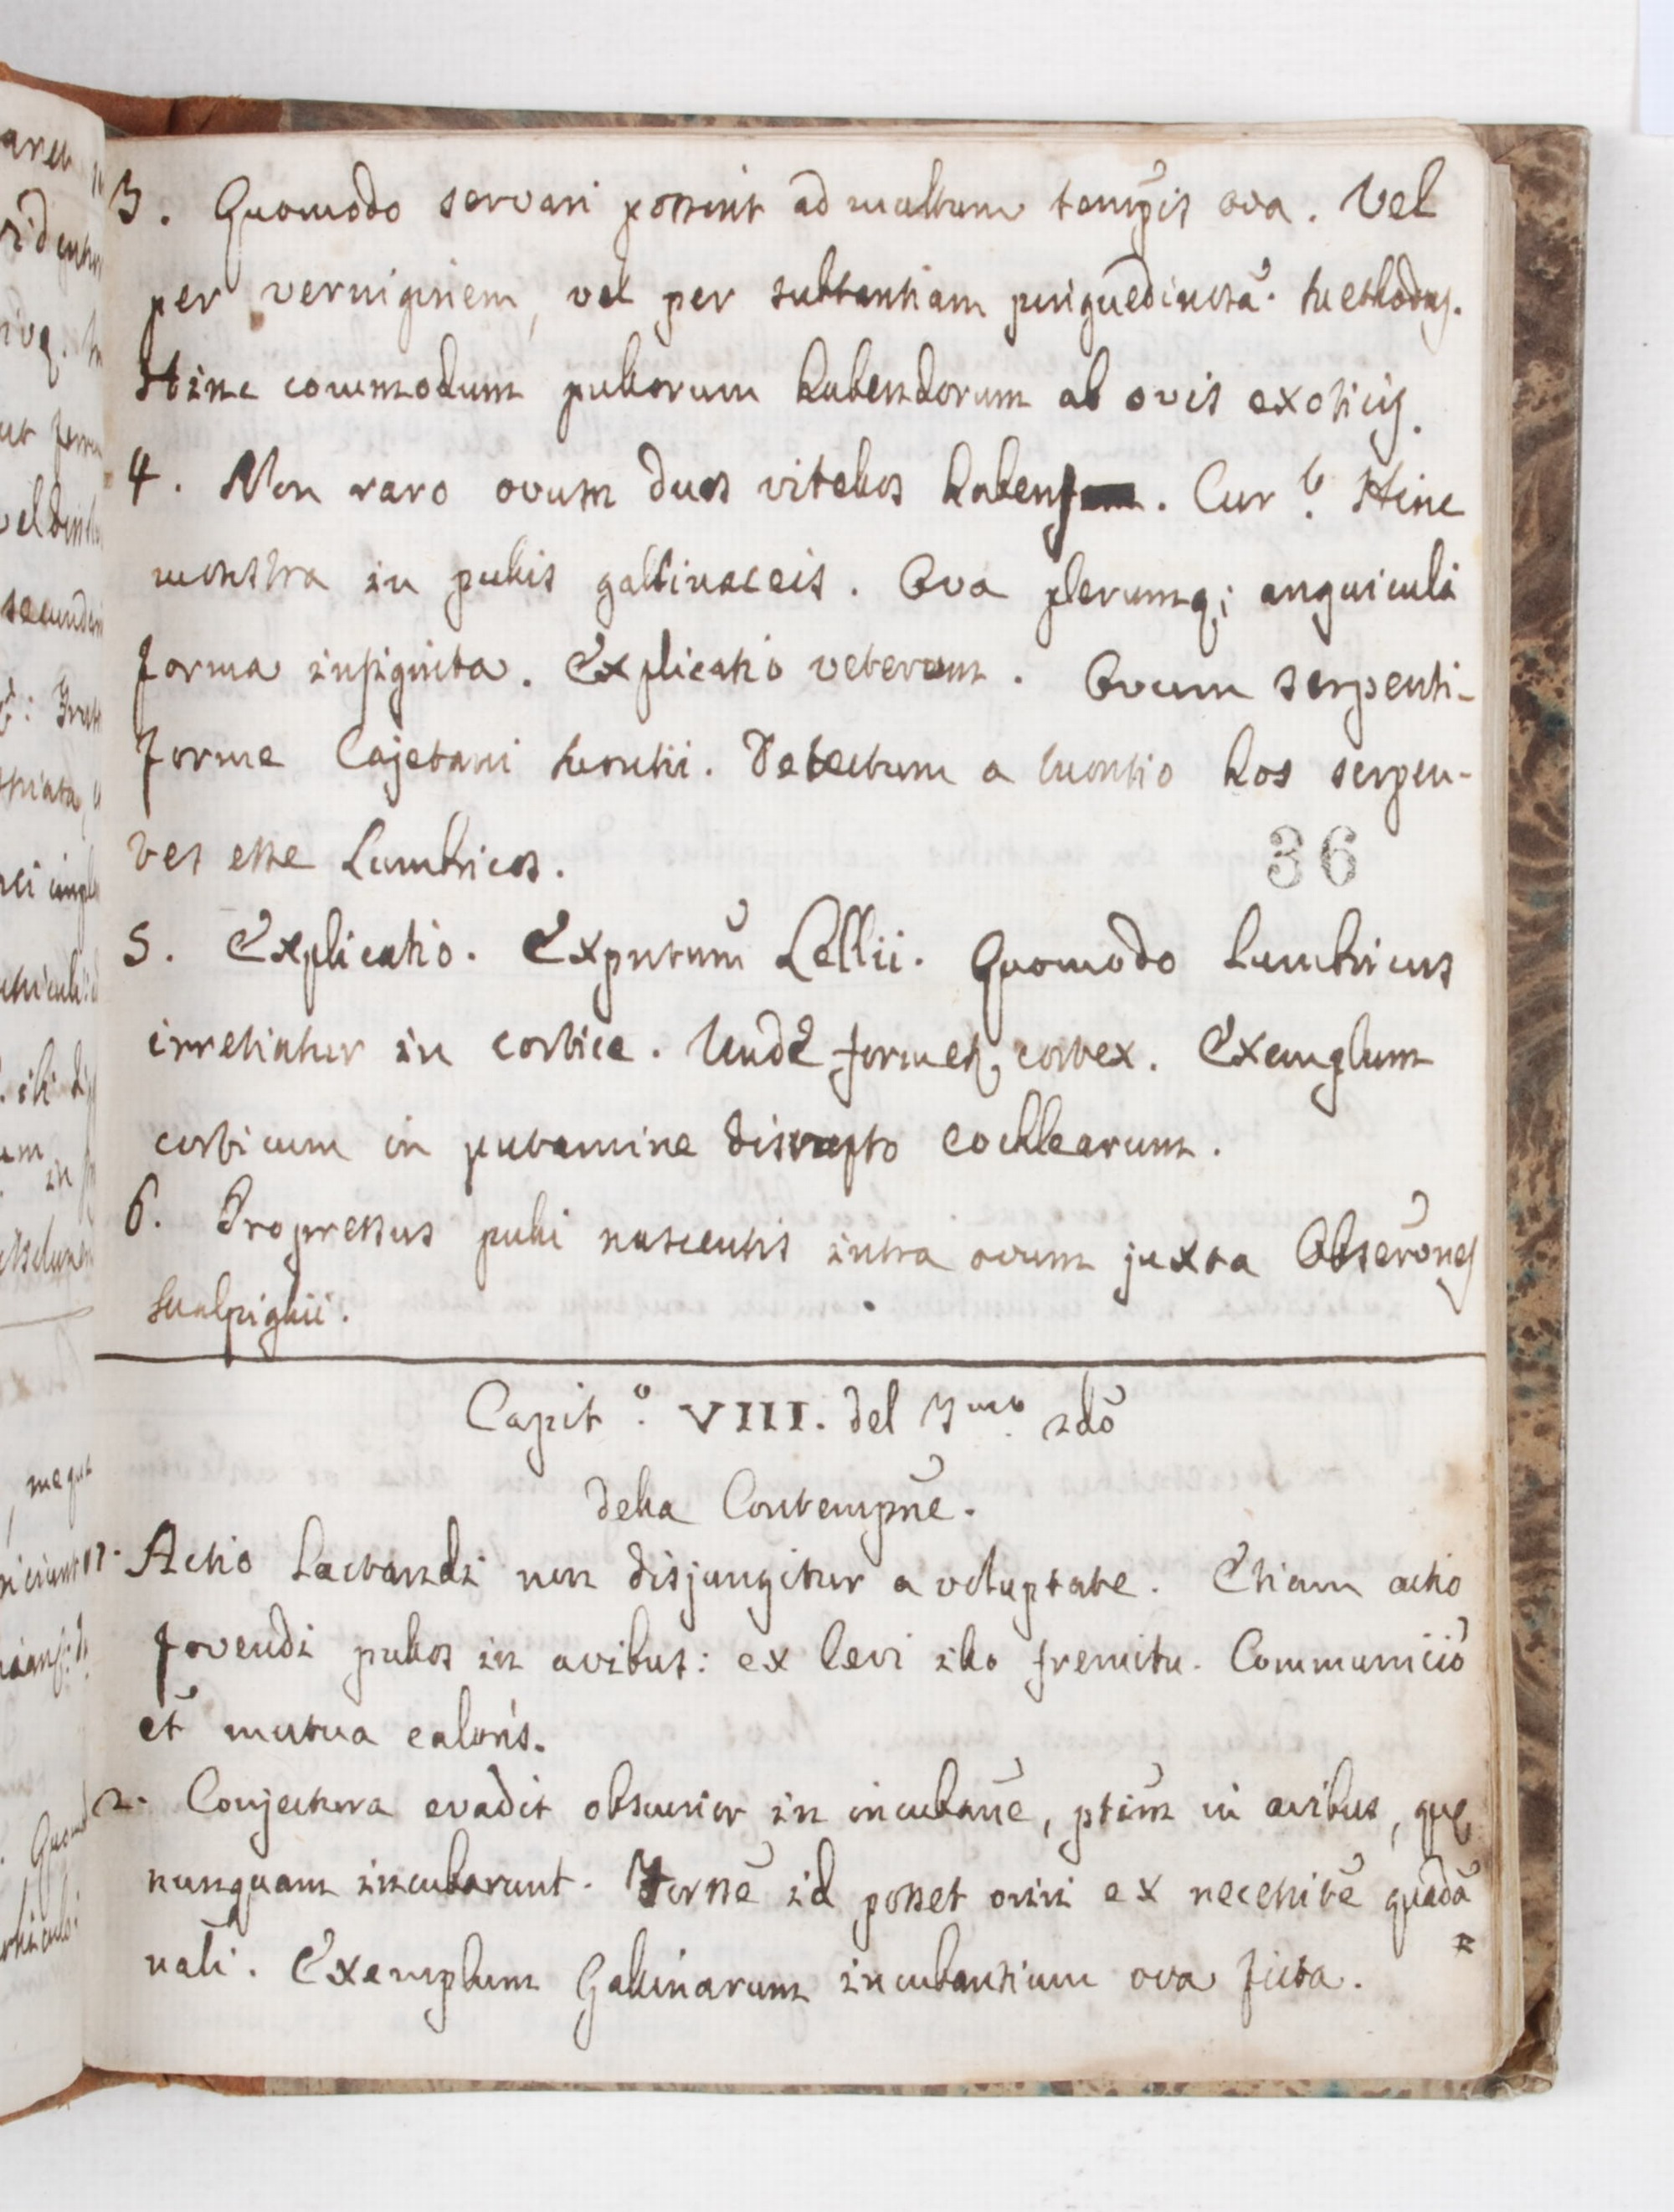 3. Quomodo servari possint ad multum temp̄is ova. Vel
per verniginem, vel per subtantiam pinguedinosā. Methodus.
Hinc commodum pullorum habendorum ab ovis exoticis.
4. Non raro ovum duos vitellos habens. Cur? Hinc
monstra in pullis gallinaceis. Ova plerumq; anguiculi
forma insignita. Explicatio veterum. Ovum serpenti-
forme Cajetani Montii. Detectum a Montio hos serpen-
tes esse Lumbricos.
36
5. Explicatio. Exp̄utum Lellii. Quomodo Lumbricus
irretiatur in cortice. Unde formetq cortex. Exemplum
corticum in putamine disrupto cochlearum.
6. Progressus pulli nascentis intra ovum juxta Observ̄ones
Malpighii.
Capit.o VIII. del 3mo 2dō
della Contemp̄ne.
1. Actio Lactandi non disjungitur a voluptate. Etiam actio
fovendi pullos in avibus: ex levi illo fremitu. Communiciō
et mutua caloris.
2. Conjectura evadit obscurior in incuban̄e, ptim̄ in avibus, quę
nunquam incubarunt. Forsē id posset oriri ex necessitē quadā
nāli. Exemplum Gallinarum incubantium ova ficta.